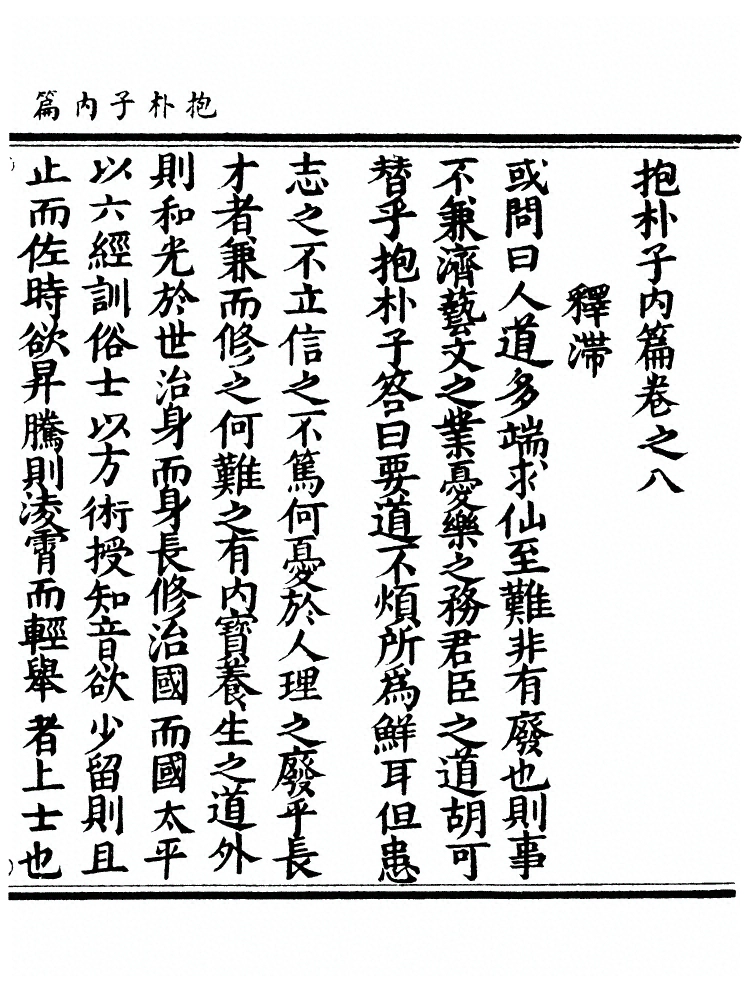 抱朴子內篇
抱朴子內篇卷之八
釋滯
或問曰人道多端求仙至難非有廢也則事
不兼濟藝文之業憂樂之務君臣之道胡可
替乎抱朴子答曰要道不煩所為鮮耳但患
志之不立信之不篤何憂於人理之廢乎長
才者兼而修之何難之有內寶養生之道外
則和光於世治身而身長修治國而國太平
以六經訓俗士以方術授知音欲少留則且
止而佐時欲昇騰則淩霄而輕舉者上士也